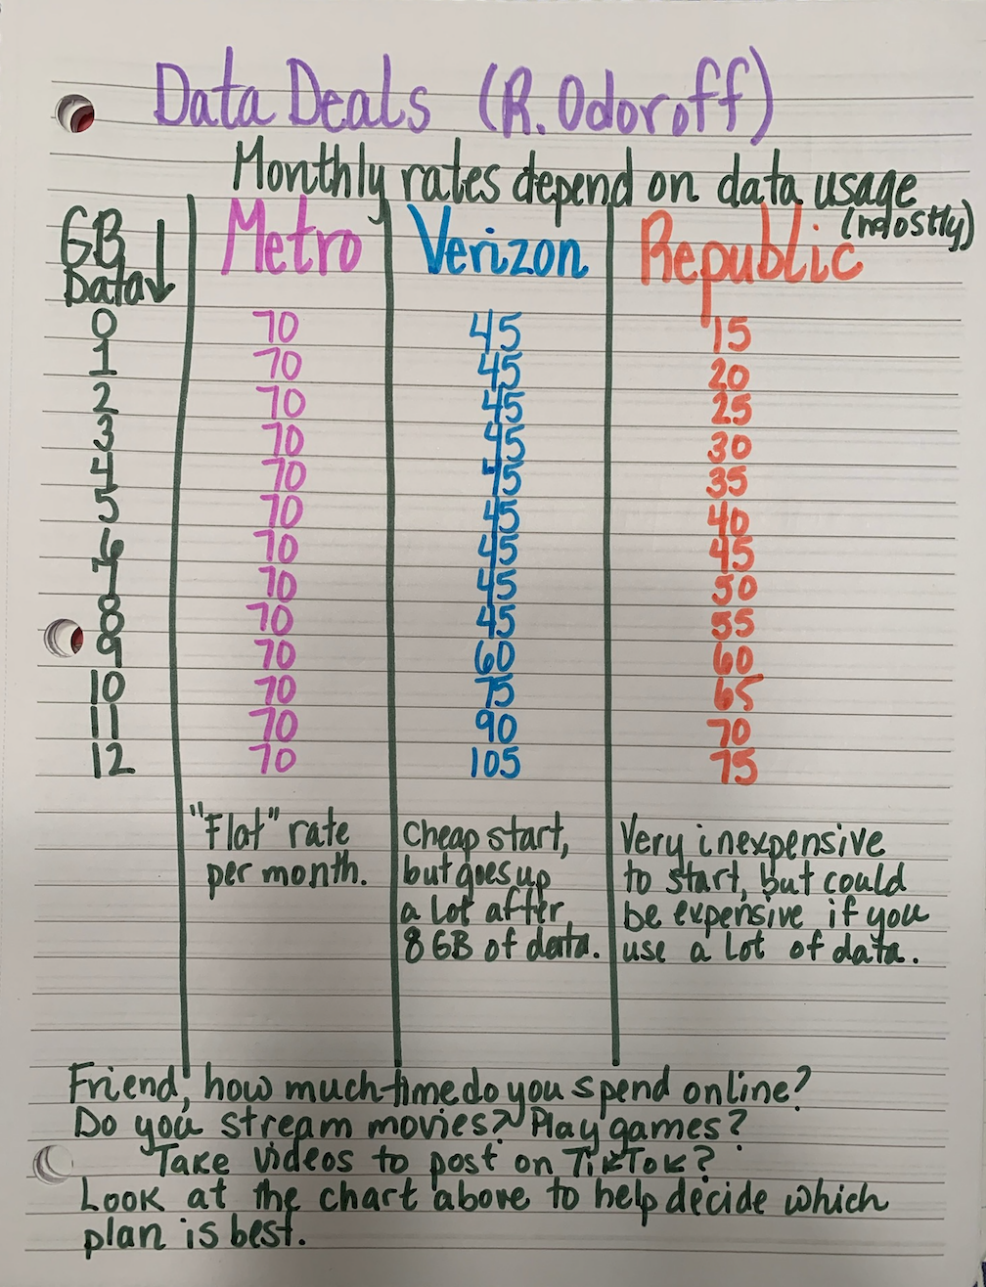 Data Deals (R. Odoroff)
Monthly rates depend on data usage
(mostly)
GB Data↓ Metro Verizon Republic
0 70 45 15
1 70 45 20
2 70 45 25
3 70 45 30
4 70 45 35
5 70 45 40
6 70 45 45
7 70 45 50
8 70 45 55
9 70 60 60
10 70 75 65
11 70 90 70
12 70 105 75
"Flat" rate
per month.
Cheap start,
but goes up
a lot after
8 GB of data.
Very inexpensive
to start, but could
be expensive if you
use a lot of data.
Friend, how much time do you spend online?
Do you stream movies? Play games?
Take videos to post on TikTok?
Look at the chart above to help decide which
plan is best.